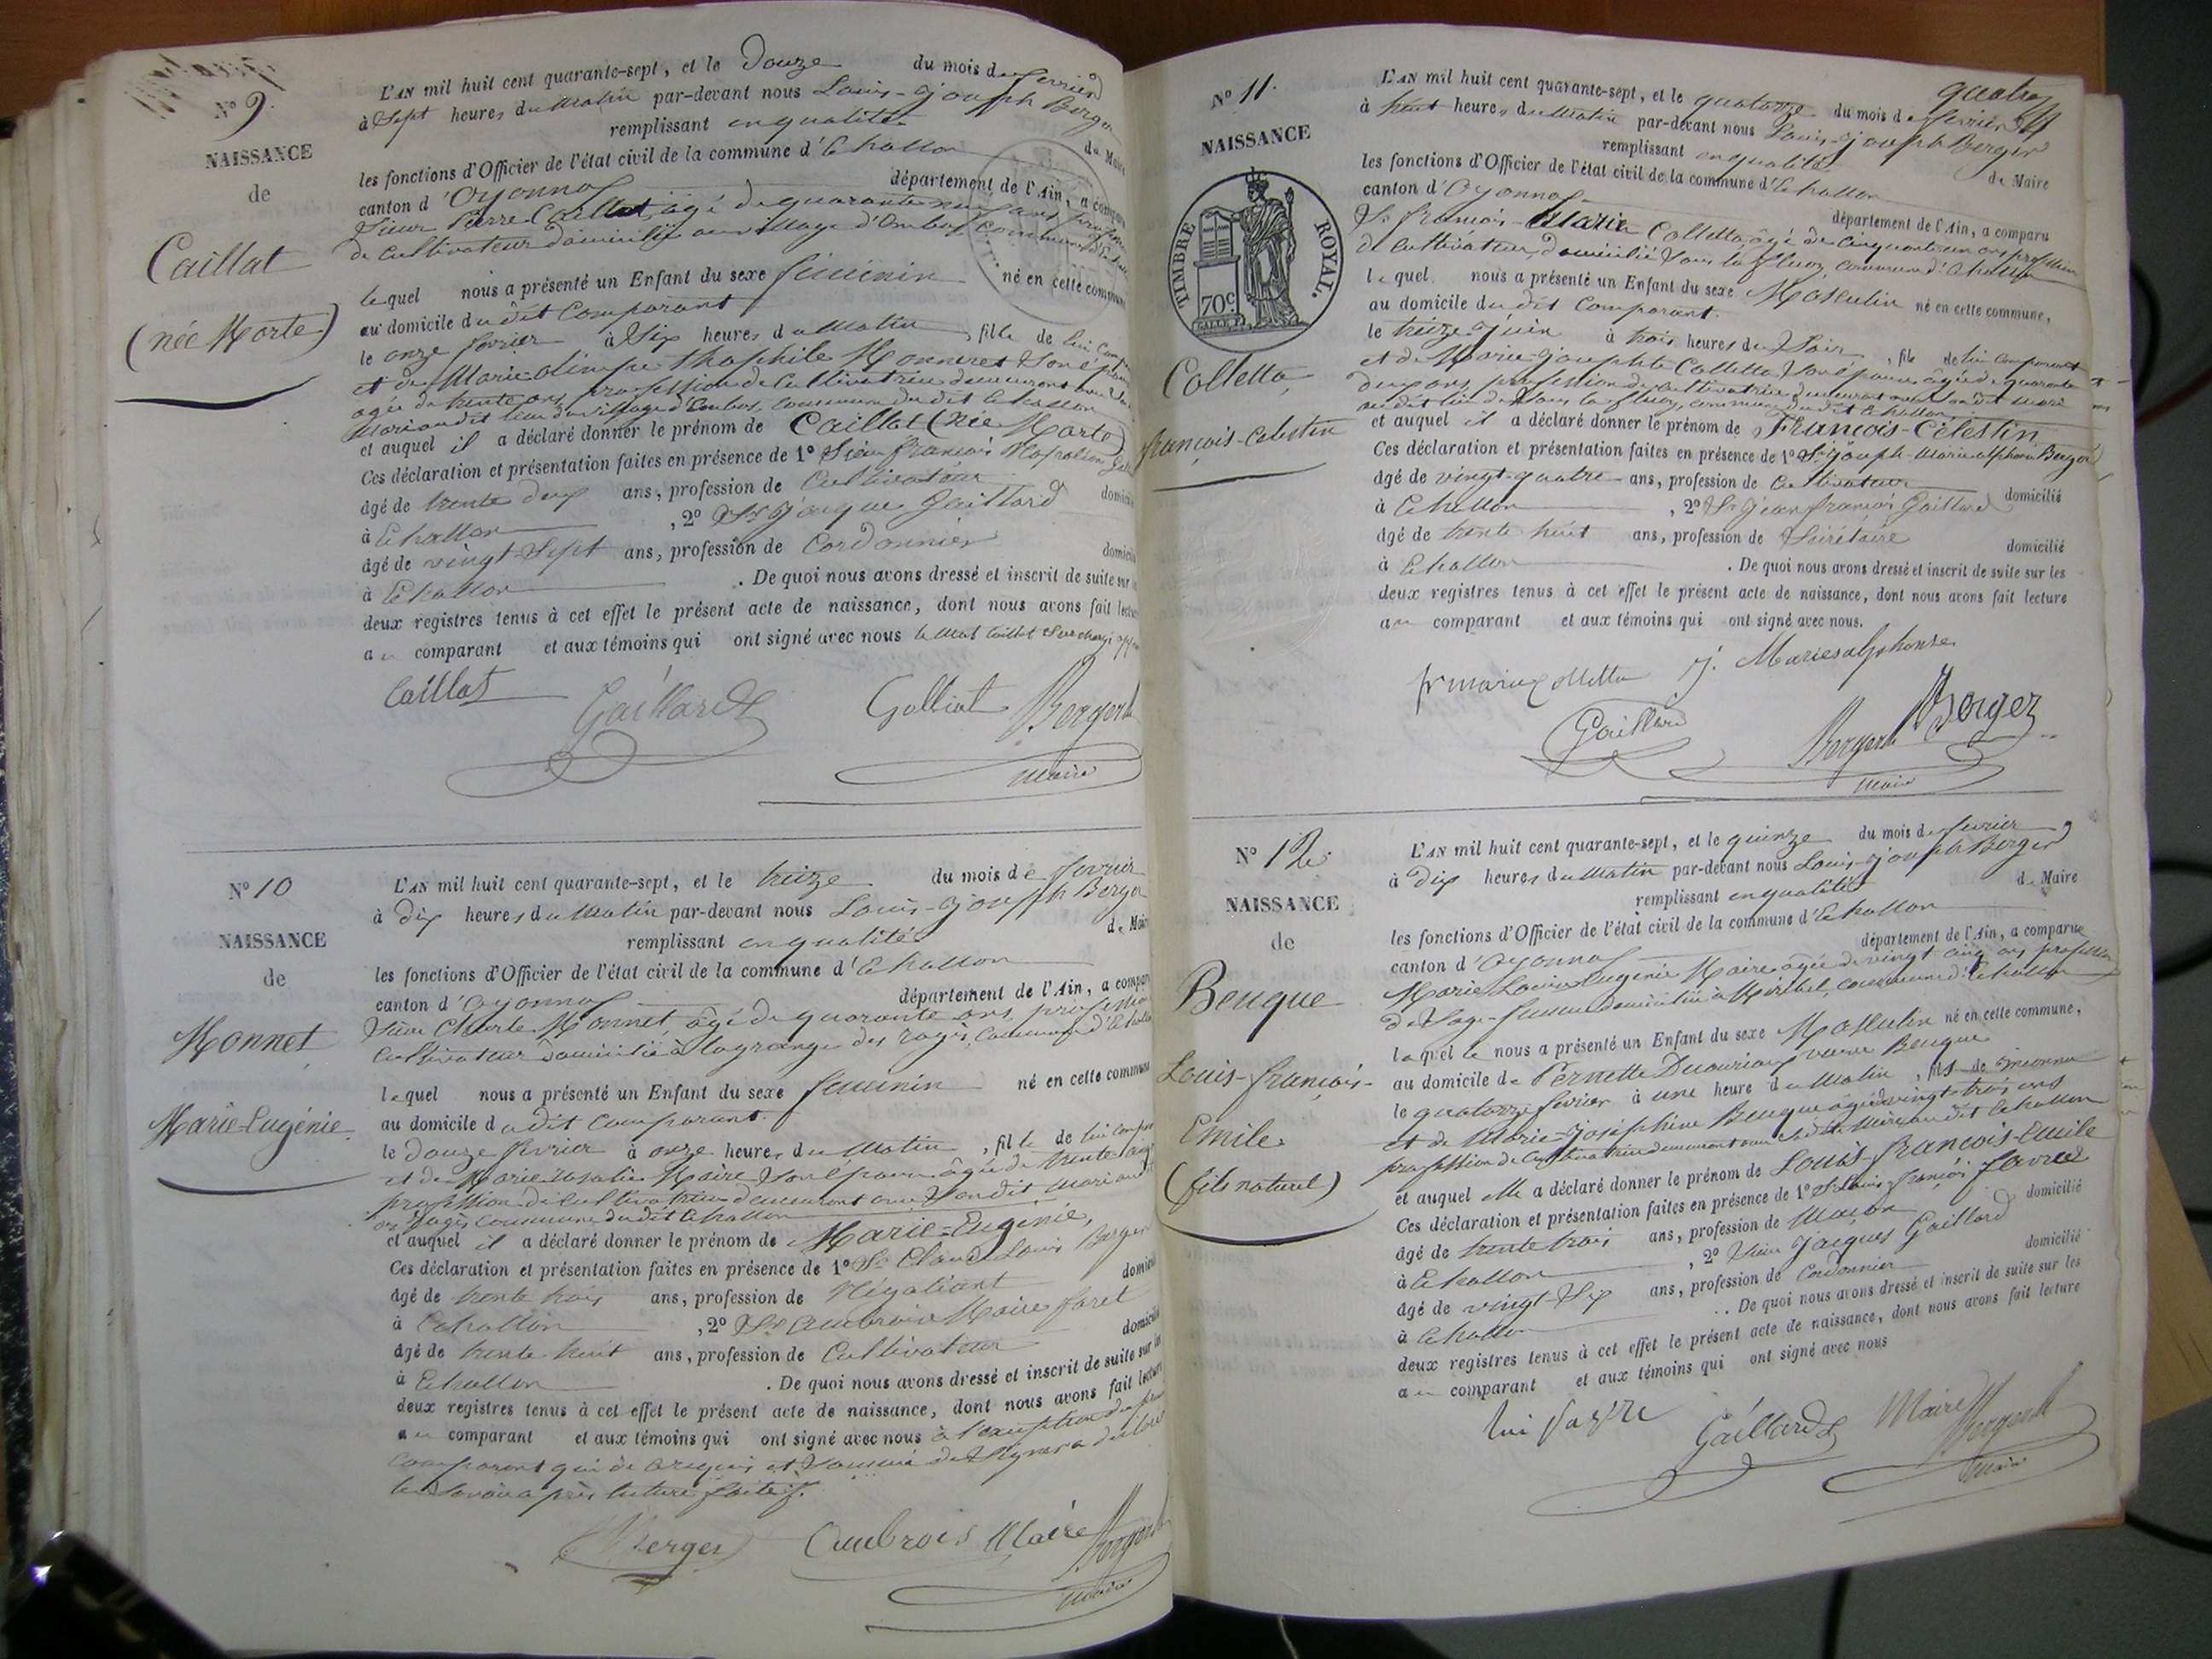 N° 9.
NAISSANCE
de
Caillat
(née Morte)
L'AN mil huit cent quarante-sept, et le Douze du mois de fevrier
à Sept heures du Matin par-devant nous Louis-Joseph Berger
remplissant en qualité de Maire
les fonctions d'Officier de l'état civil de la commune d'Echallon
canton d'Oyonnax département de l'Ain, a comparu
Sieur Pierre Caillat, âgé de quarante neuf ans profession
de Cultivateur domicilié au village d'Ombos, Commune
lequel nous a présenté un Enfant du sexe féminin né en cette commune
au domicile du dit Comparant
le onze fevrier à Six heures du Matin, fille de lui Comp
et de Marie olimpe thaophile Monneret Son épouse
agée de trente ans, profession de Cultivatrice demeurant avec Son
Mari au dit lieu du village d'Ombos, commune du dit Echallon
et auquel il a déclaré donner le prénom de Caillat (Née Morte)
Ces déclaration et présentation faites en présence de 1° Sieur François
âgé de trente deux ans, profession de Cultivateur domicilié
à Echallon, 2° Sr Jacque Gaillard
âgé de vingt Sept ans, profession de Cordonnier domicilié
à Echallon. De quoi nous avons dressé et inscrit de suite sur
deux registres tenus à cet effet le présent acte de naissance, dont nous avons fait lecture
au comparant et aux témoins qui ont signé avec nous le Mot Caillat Surchargé
Caillat Gaillard Berger
Maire
N° 10
NAISSANCE
de
Monnet,
Marie-Eugénie
L'AN mil huit cent quarante-sept, et le treize du mois de fevrier
à Dix heures du Matin par-devant nous Louis-Joseph Berger
remplissant en qualité de Maire
les fonctions d'Officier de l'état civil de la commune d'Echallon
canton d'Oyonnax département de l'Ain, a comparu
Sieur Monnet, âgé de quarante ans, profession
Cultivateur domicilié à lagrange des ragis, Commune d'Echallon
lequel nous a présenté un Enfant du sexe féminin né en cette commune
au domicile du dit comparant.
le douze fevrier à onze heures du Matin, fille de lui comparant
et de Marie rosalie Maire Son épouse âgée de trente cinq
profession de Cultivatrice demeurant avec Son dit mari
ragis, commune du dit Echallon
et auquel il a déclaré donner le prénom de Marie-Eugénie,
Ces déclaration et présentation faites en présence de 1° Sr Claude Louis Berger
âgé de trente trois ans, profession de Négotiant domicilié
à Echallon, 2° Sr Ambroise Maire foret
âgé de trente huit ans, profession de Cultivateur domicilié
à Echallon. De quoi nous avons dressé et inscrit de suite sur les
deux registres tenus à cet effet le présent acte de naissance, dont nous avons fait lecture
au comparant et aux témoins qui ont signé avec nous à l'exeption du
comparant qui de ce requis et Sommé de Signer a déclaré
le Savoir après lecture faite.
Berger Ambrois Maire Berger
Maire
quatre
N° 11.
NAISSANCE
TIMBRE ROYAL.
70c
Colletta,
françois-Celestin
L'AN mil huit cent quarante-sept, et le quatorze du mois de fevrier
à huit heures du Matin par-devant nous Louis-Joseph Berger
remplissant en qualité de Maire
les fonctions d'Officier de l'état civil de la commune d'Echallon
canton d'Oyonnax département de l'Ain, a comparu
Sr françois-Marie Colletta, âgé de cinquante un ans profession
de cultivateur, domicilié Sous la fluoz, commune d'Echallon
lequel nous a présenté un Enfant du sexe Masculin né en cette commune,
au domicile du dit Comparant.
le treize à trois heures du Soir, fils de lui comparant
et de Marie-Josephte Colletta Son épouse âgée de quarante
deux ans, profession de cultivatrice demeurant avec Son dit Mari
au dit lieu de Sous la fluoz, commune du dit Echallon
et auquel il a déclaré donner le prénom de François-Celestin
Ces déclaration et présentation faites en présence de 1° Sr Joseph-Marie alphonse Berger
âgé de vingt-quatre ans, profession de Cultivateur domicilié
à Echallon, 2° Sr Jean françois Gaillard
âgé de trente huit ans, profession de Sécrétaire domicilié
à Echallon. De quoi nous avons dressé et inscrit de suite sur les
deux registres tenus à cet effet le présent acte de naissance, dont nous avons fait lecture
au comparant et aux témoins qui ont signé avec nous.
fr marie colletta J. Mariesalphonse
Gaillard Berger Berger
Maire
N° 12.
NAISSANCE
de
Beuque
Louis-françois-
Emile.
(fils naturel)
L'AN mil huit cent quarante-sept, et le quinze du mois de fevrier
à Dix heures du Matin par-devant nous Louis-Joseph Berger
remplissant en qualité de Maire
les fonctions d'Officier de l'état civil de la commune d'Echallon
canton d'Oyonnax département de l'Ain, a comparue
Marie Louise Eugénie Maire âgée de vingt cinq ans profession
de Sage-femme domiciliée à, commune d'Echallon
laquelle nous a présenté un Enfant du sexe Masculin né en cette commune,
au domicile de Pernette veuve Beuque
le quatorze fevrier à une heure du Matin, fils de inconnu
et de Marie-Joséphine Beuque âgée de vingt-trois ans
profession de Cultivatrice demeurant avec Sa dite Mère au dit Echallon
et auquel elle a déclaré donner le prénom de Louis-françois-Emile
Ces déclaration et présentation faites en présence de 1° Sr Louis françois favre
âgé de trente trois ans, profession de Maçon domicilié
à Echallon, 2° Sieur Jacques Gaillard
âgé de vingt-Six ans, profession de Cordonnier domicilié
à Echallon. De quoi nous avons dressé et inscrit de suite sur les
deux registres tenus à cet effet le présent acte de naissance, dont nous avons fait lecture
au comparant et aux témoins qui ont signé avec nous
Gaillard Maire Berger
Maire